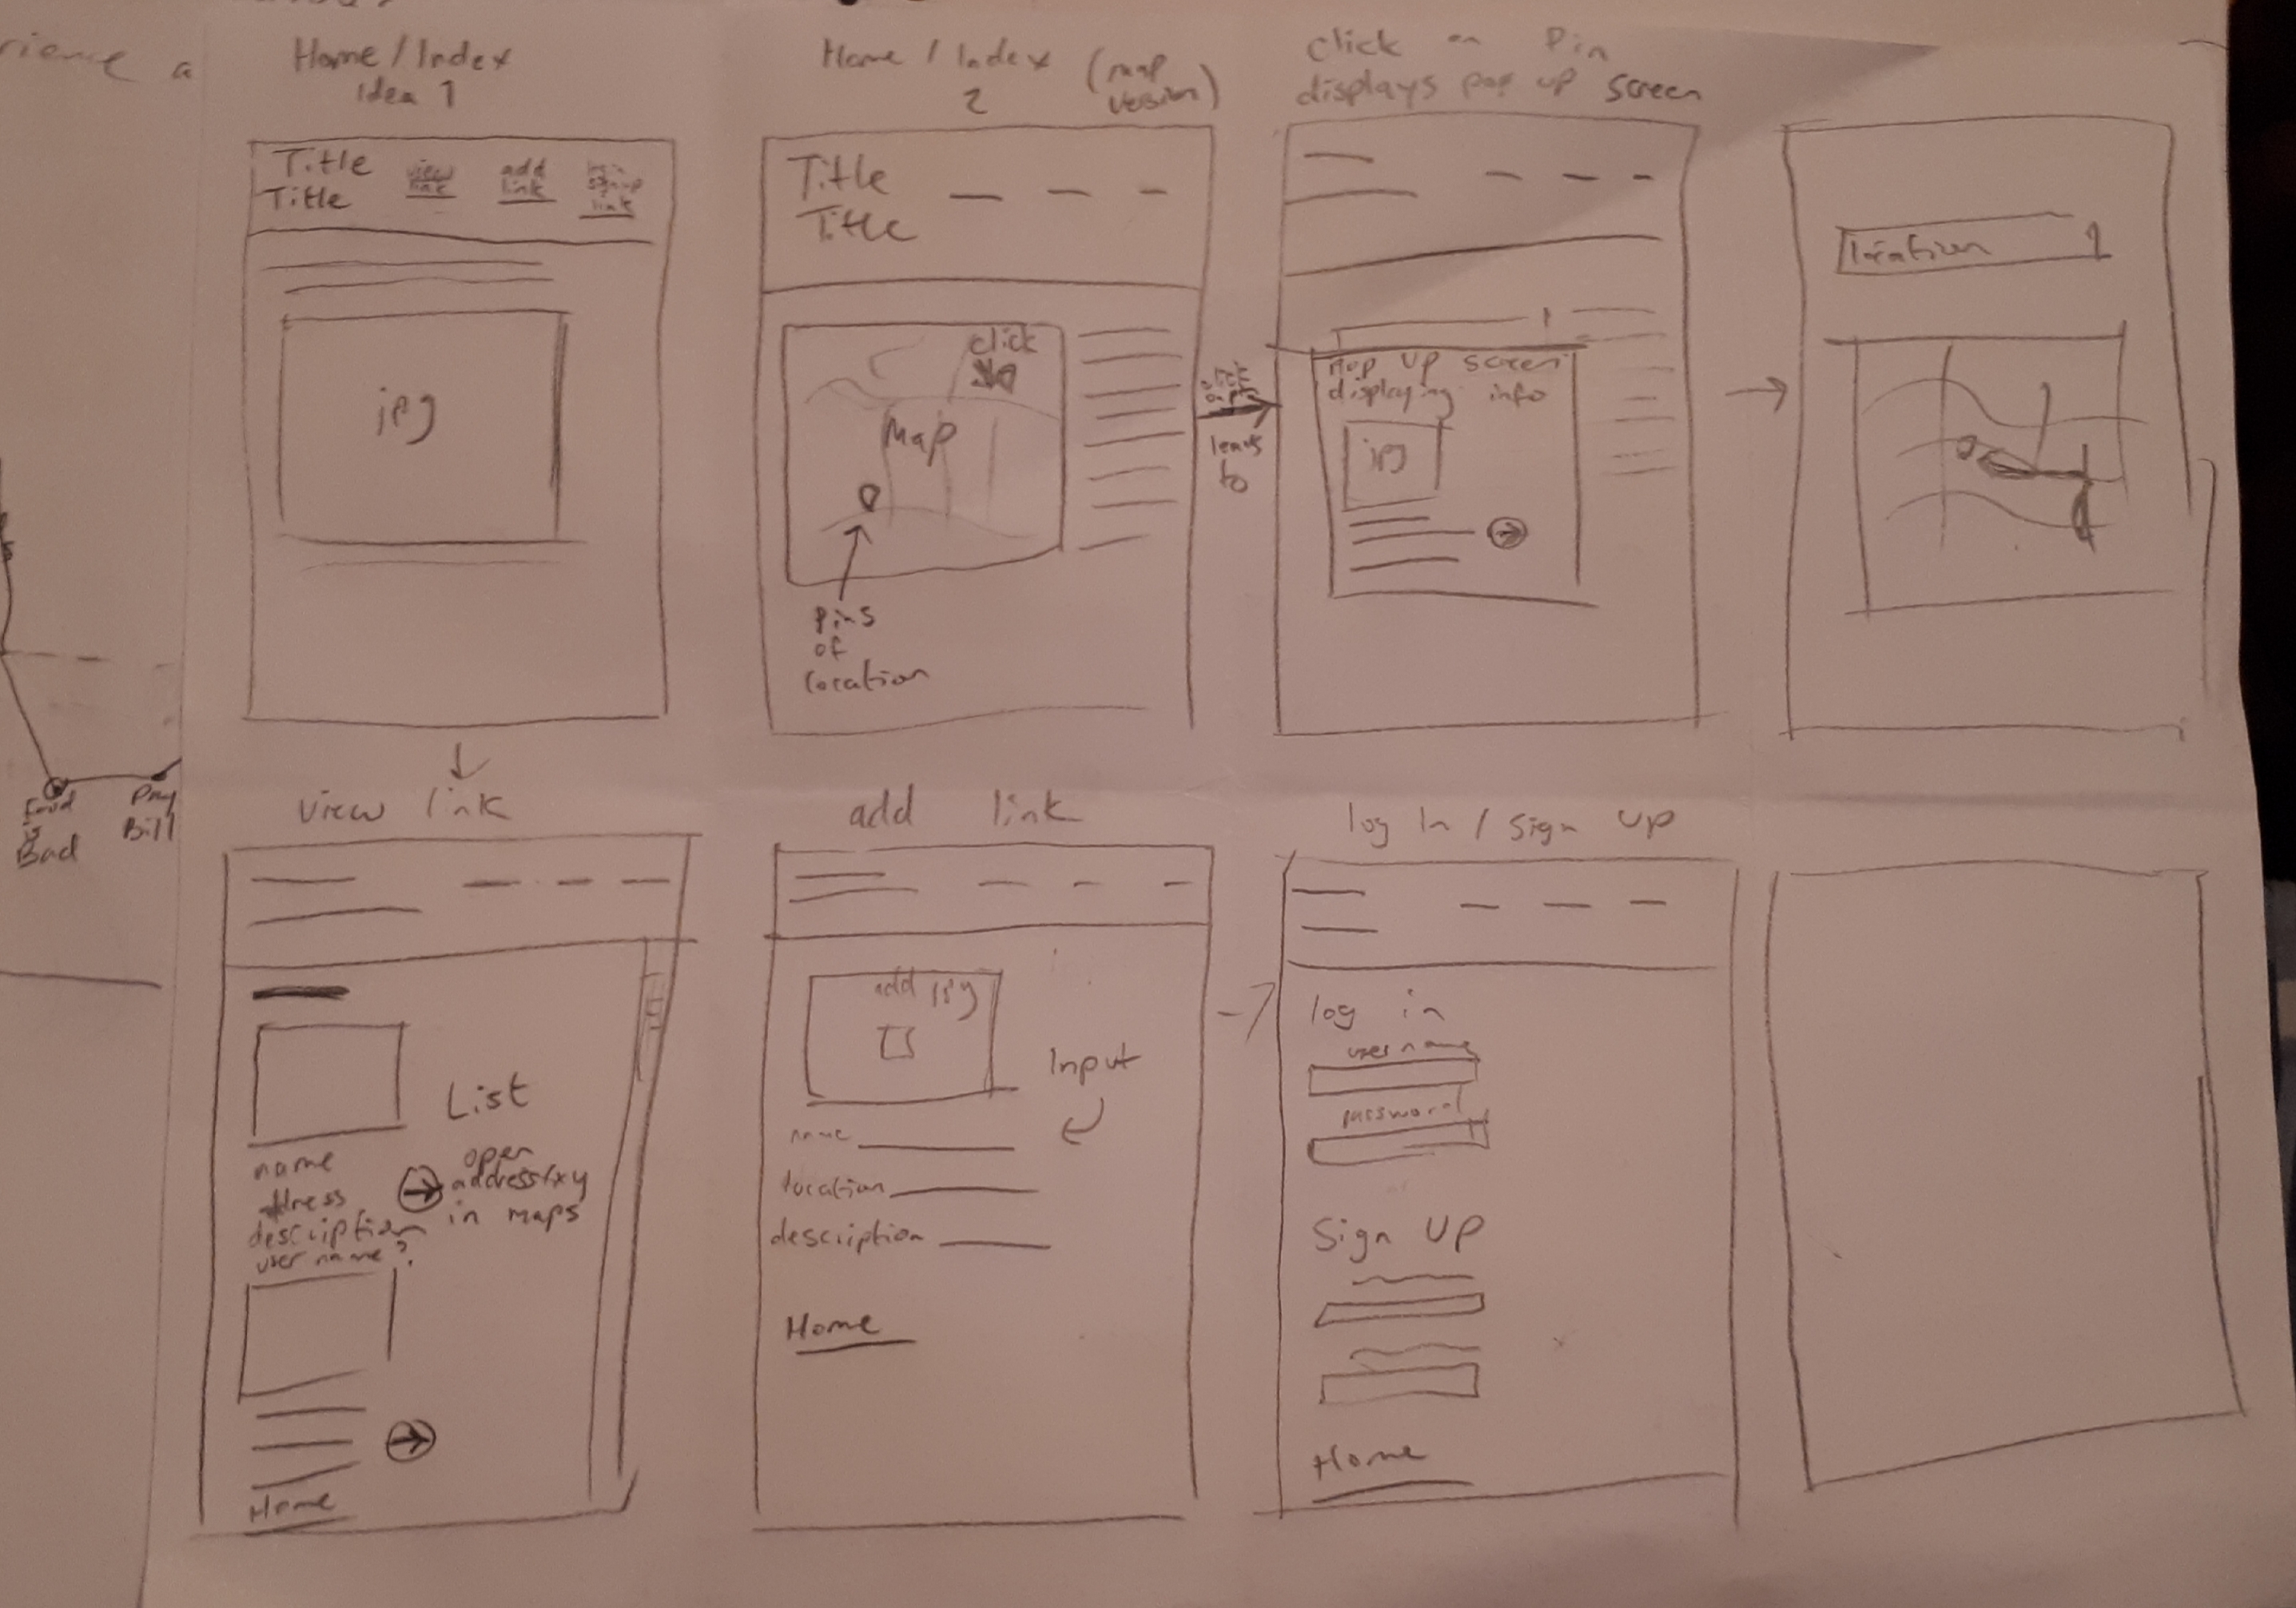 Home / Index
Idea 1
Title
Title
view
link
add
link
sign up
link
jpg
Home / Index
2
(map
version)
Title
Title
click
Map
pins
of
location
click
leads
to
Click on Pin
displays pop up screen
Pop up screen
displaying info
jpg
location
view link
List
name
address
description
user name?
open
address/xy
in maps
Home
add link
add jpg
Input
name
location
description
Home
log In / Sign up
log in
username
password
Sign Up
Home
Food
is
Bad
Pay
Bill